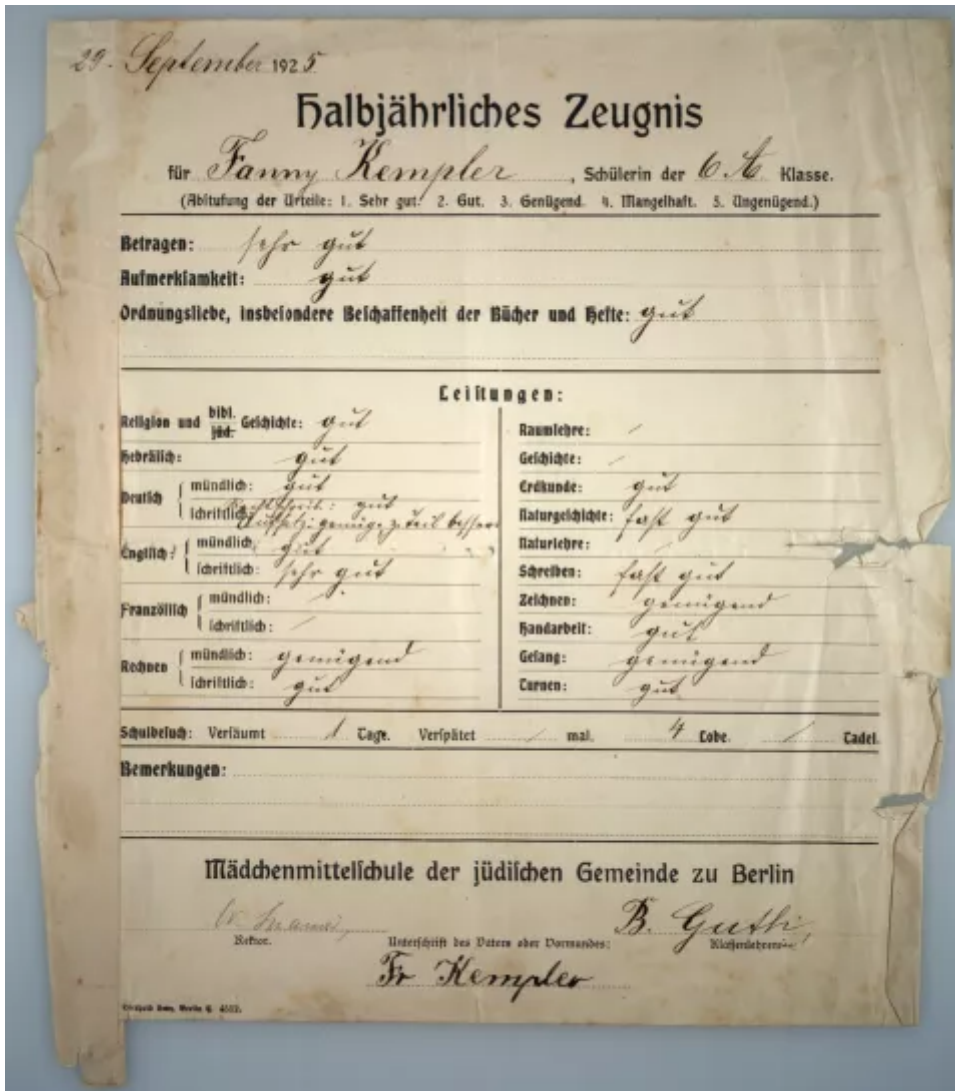 29. September 1925
Halbjährliches Zeugnis
für Fanny Kempler, Schülerin der 6 A Klasse.
(Abstufung der Urteile: 1. Sehr gut. 2. Gut. 3. Genügend. 4. Mangelhaft. 5. Ungenügend.)
Betragen: sehr gut
Aufmerksamkeit: gut
Ordnungsliebe, insbesondere Beschaffenheit der Bücher und Hefte: gut
Leistungen:
Religion und bibl. jüd. Geschichte: gut
Hebräisch: gut
Deutsch
mündlich: gut
schriftlich: Rechtschreib.: gut
Aufsatz: genüg. z. teil besser
Englisch:
mündlich: gut
schriftlich: sehr gut
Französisch
mündlich: /
schriftlich: /
Rechnen
mündlich: genügend
schriftlich: gut
Raumlehre: /
Geschichte: /
Erdkunde: gut
Naturgeschichte: fast gut
Naturlehre: /
Schreiben: fast gut
Zeichnen: genügend
Handarbeit: gut
Gesang: genügend
Turnen: gut
Schulbesuch: Versäumt 1 Tage. Verspätet / mal. 4 Lobe. / Tadel.
Bemerkungen:
Mädchenmittelschule der jüdischen Gemeinde zu Berlin
B. Gutti
Rektor. Unterschrift des Vaters oder Vormundes: Klassenlehrerin
Fr Kempler